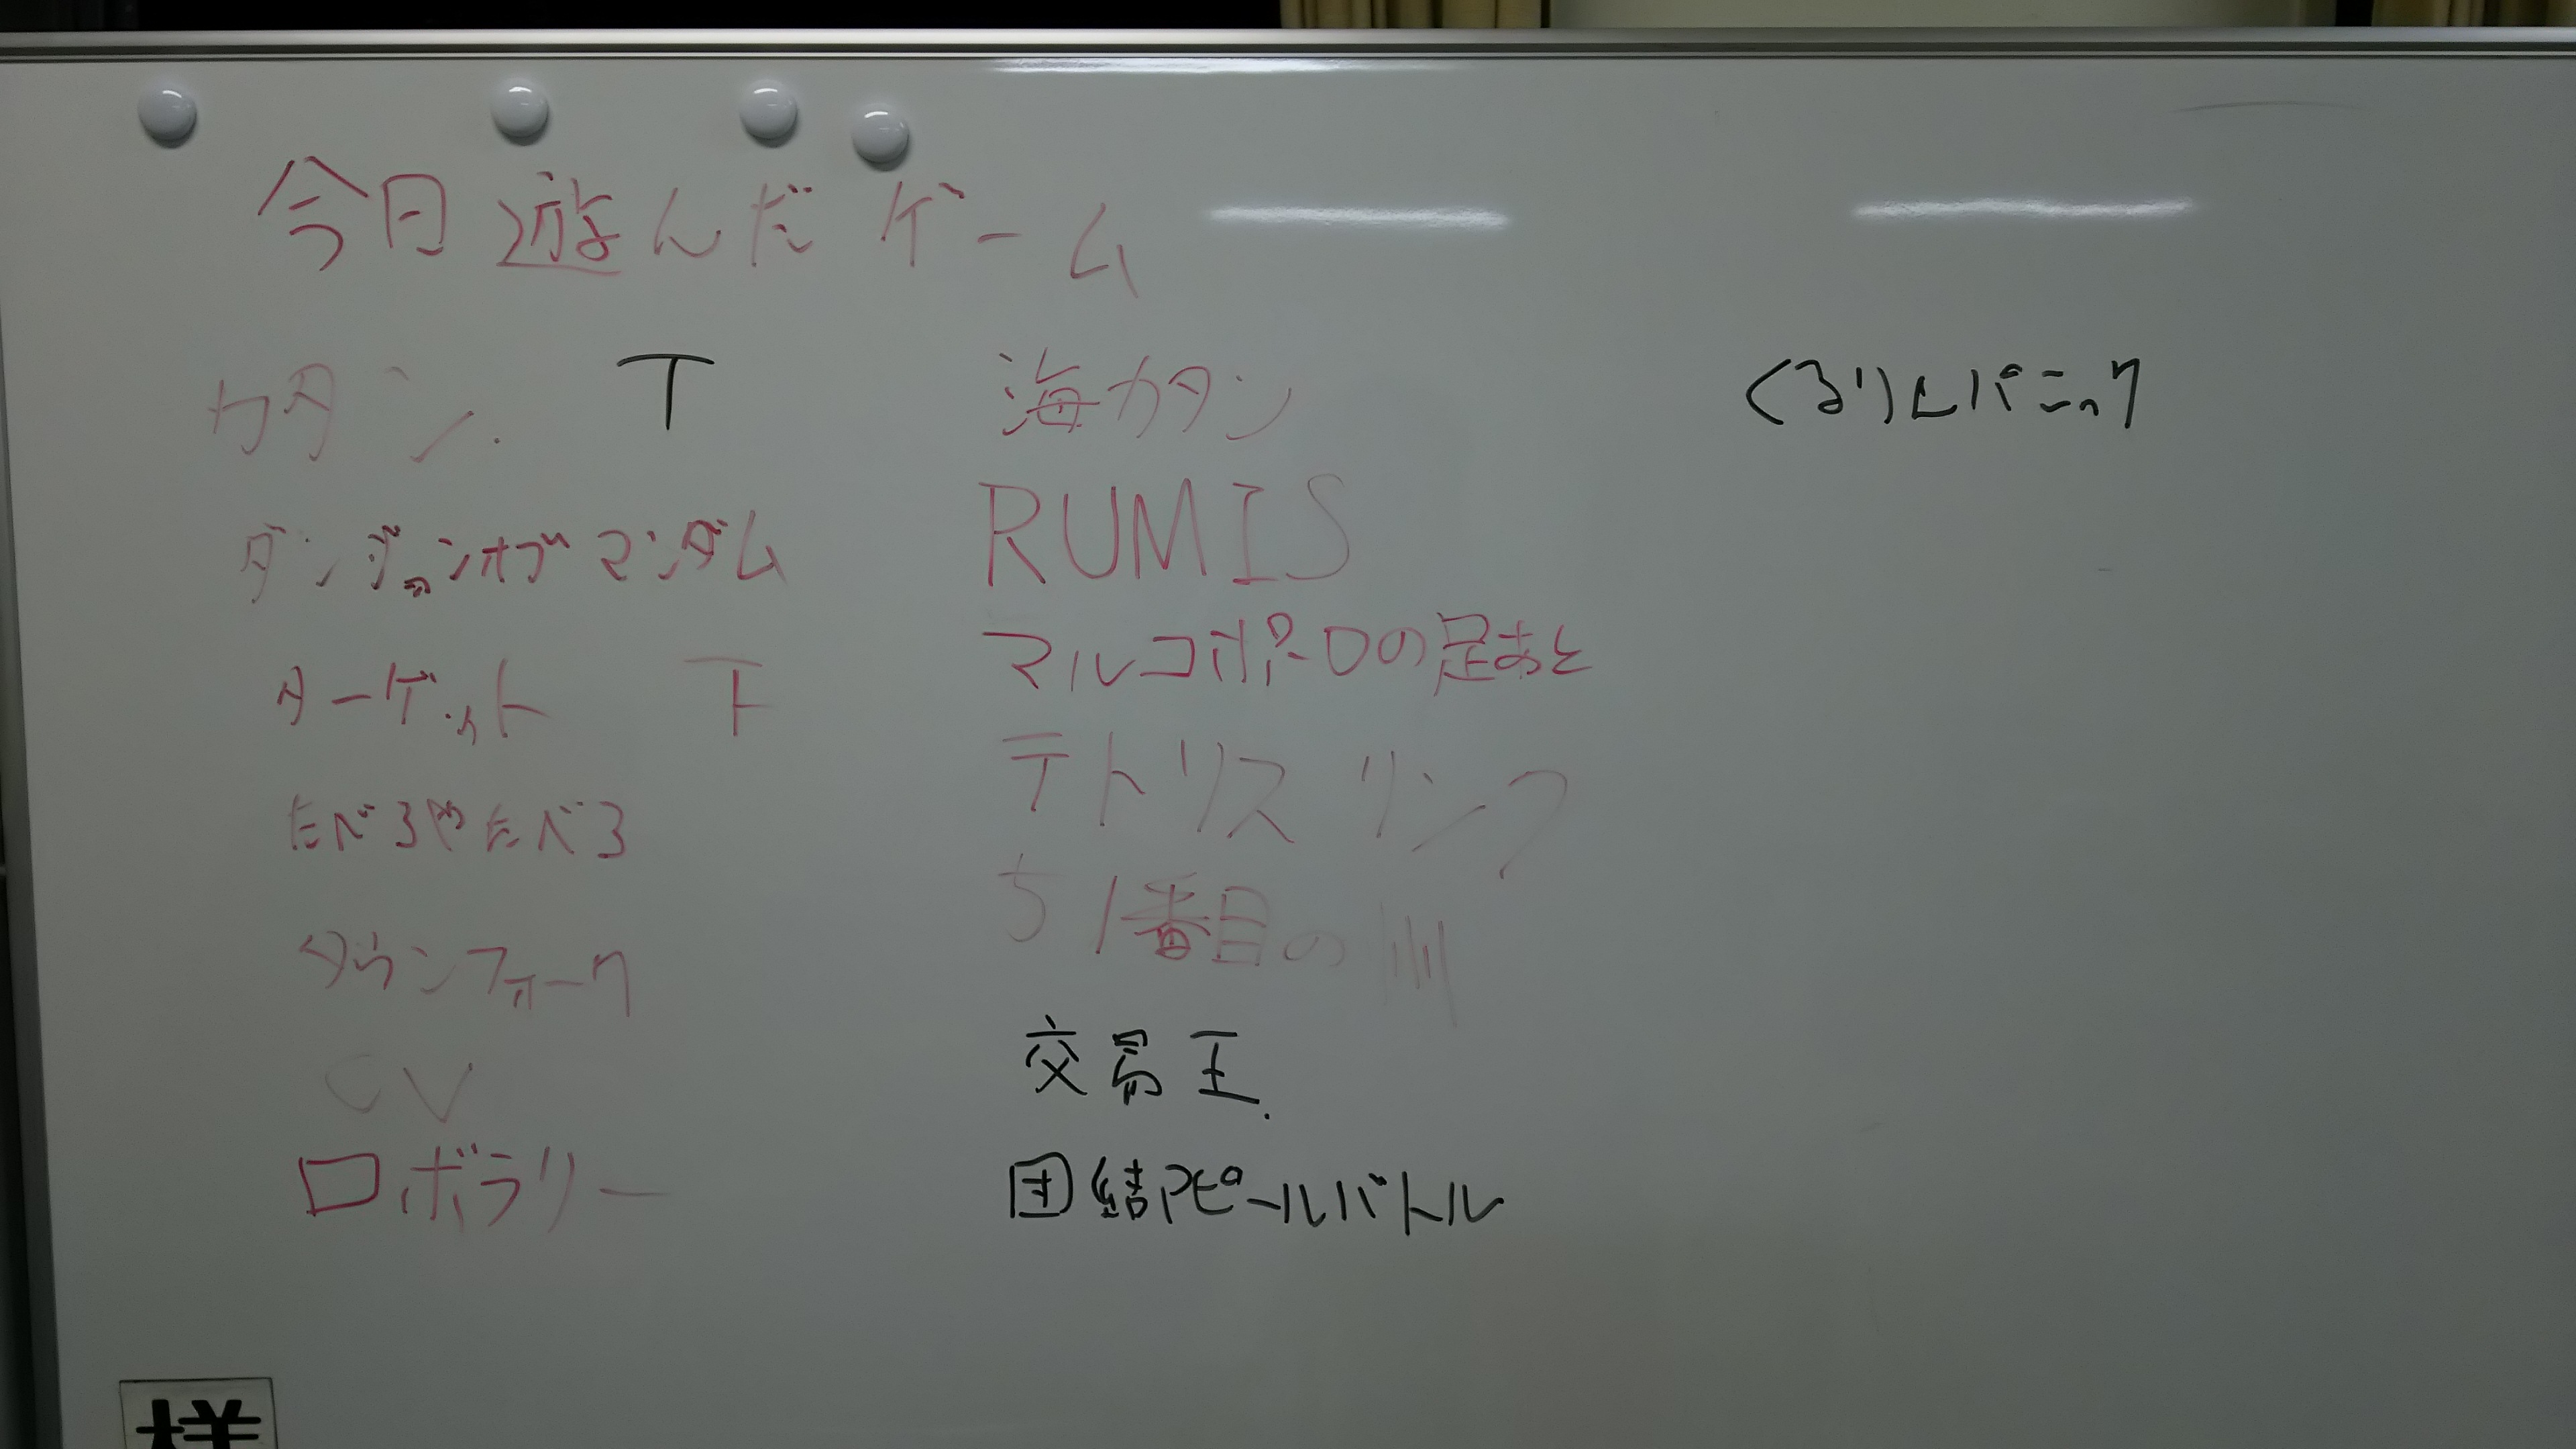 今日遊んだゲーム
カタン. T
ダンジョンオブマンダム
ターゲット 下
たべるやたべる
ダウンフォーク
CV
ロボラリー
海カタン
RUMIS
マルコポーロの足あと
テトリスリンク
51番目の
交易王.
団結アピールバトル
くるりんパニック
様